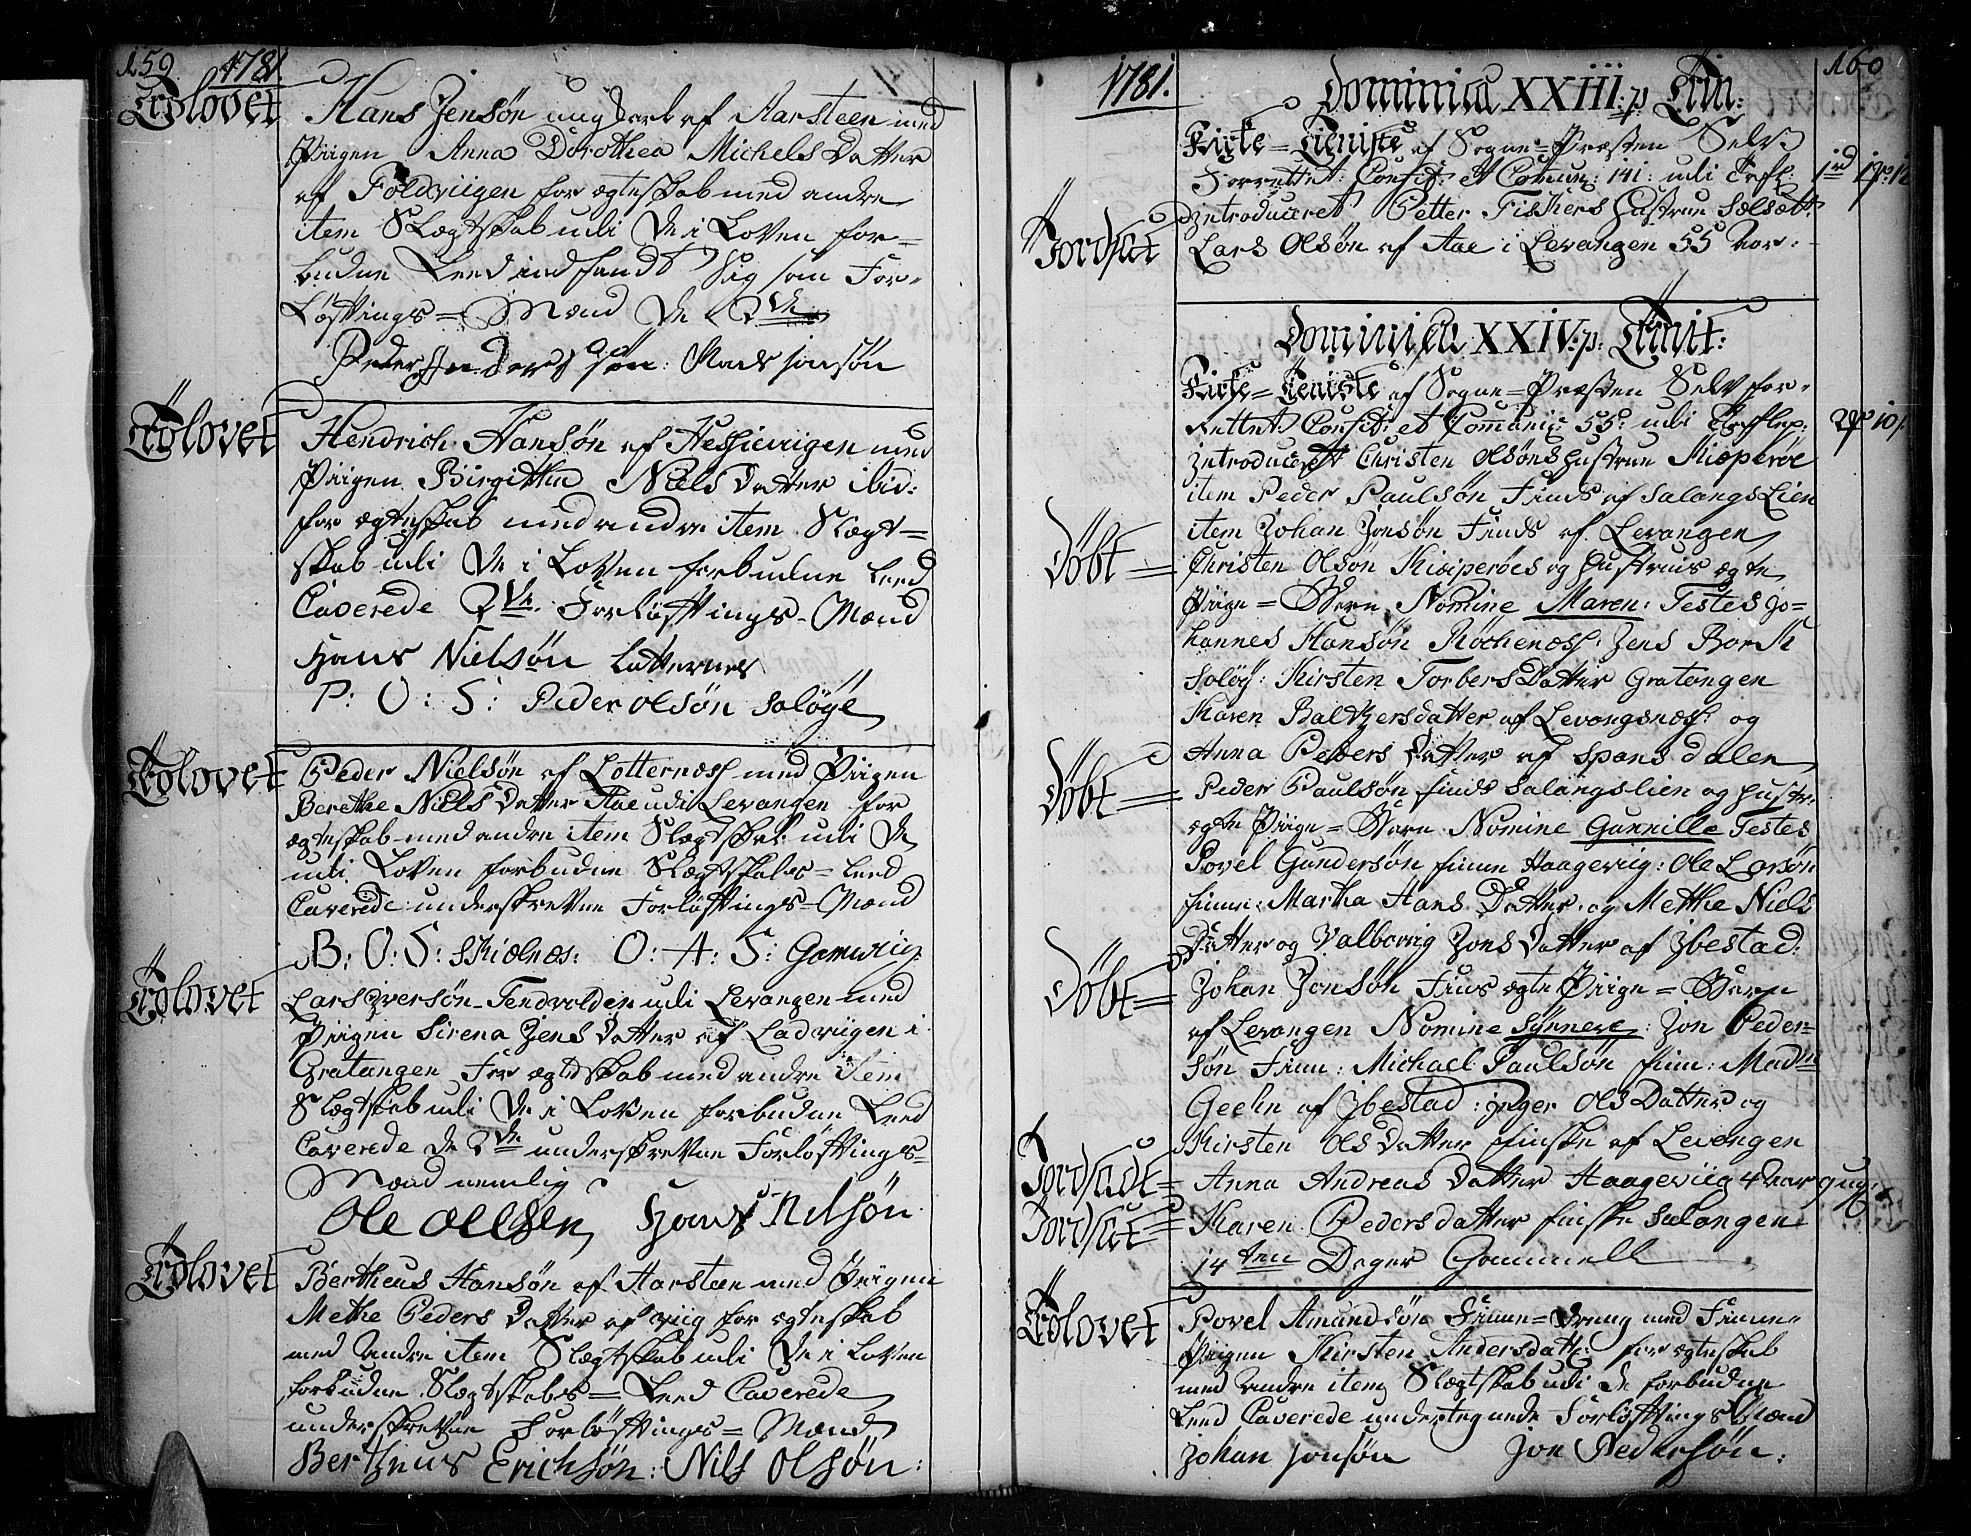 159 1781
Trolovet Hans Jensøn ungkarl af Aarsteen med
Piigen Anna Dorothea Michels Datter
af Foldviigen for ægteskab med andre
item Slægtskab udi de i Loven for-
budne Leed indfandt Sig som For-
Løftnings-Mænd de 2de
Peder Andersøn: Mads Jonsøn
Trolovet Hendrich Hansøn af Hessieviigen med
Piigen Birgitha Niels Datter ibid:
for ægteskab med andre item Slægt-
skab udi de i Loven forbudne Leed
Caverede 2de Forløftnings-Mænd
Hans Nielsøn Latternes
P: O: S: Peder Olsøn Saløye
Trolovet Peder Nielsøn af Lotternæss med Piigen
Berethe Niels Datter Aae udi Levangen for
ægteskab med andre item Slægtskab udi de
udi Loven forbudne Slægtskabs-Leed
Caverede underskrevne Forløftnings-Mænd
B: O: S: Skiælnæs: O: A: S: Gamviig
Trolovet Lars Iversøn Tendvolden udi Levangen med
Piigen Sirena Jens Datter af Ladviigen i
Gratangen for ægteskab med andre item
Slægtskab udi de i Loven forbudne Leed
Caverede de 2de underskrevne Forløftnings-
Mænd nemlig
Ole Oellsen Hans Nilsøn
Trolovet Bertheus Hansøn af Aarsteen med Piigen
Methe Peders Datter af Viig for ægteskab
med andre item Slægtskab udi de i Loven
forbudne Slægtskabs-Leed Caverede
underskrevne Forløftnings-Mænd
Bertheus Erichsøn: Nils Olsøn:
1781. Dominica XXIII p Trin: 160
Kirke-Tieniste af Sogne-Præsten Selv
Forrettet: Confit: et Comun: 141: udi Tafl:
Introduceret Petter Fiskers Hustrue Sælsætt
Jordsat Lars Olsøn af Aae i Levangen 55 Aar:
Dominica XXIV: p: Trinit:
Kirke-Tieniste af Sogne-Præsten Selv for-
rettet Confit: et Communi: 55: udi
Introduceret Christen Olsøns Hustrue Kiøperøe
item Peder Paulsøn Finds af Salangs Lien
item Johan Jonsøn Finds af Levangen
Døbt Christen Olsøn Kiøiperøes og Hustrues ægte
Piige-Barn Nomine Maren: Testes Jo-
hannes Hansøn Røckenæss: Jens Bork
Soløy: Kirsten Torbers Datter Gratangen
Karen Baltzersdatter af Levangsnæss: og
Anna Peders Datter af Spansdalen
Døbt Peder Paulsøn Finds Salangslien og Hustr:
ægte Piige-Barn Nomine Gunnille Testes
Povel Gundersøn finn Haageviig: Ole Larsøn
finn: Martha Hans Datter og Methe Niels
Datter og Valborrig Jons Datter af Ibestad:
Døbt Johan Jonsøn Fins ægte Piige-Barn
af Levangen Nomine Synneve: Jon Peder-
søn Finn: Michael Paulsøn finn: Madme
Geehn af Ibestad: Inger Ols Datter og
Kirsten Ols Datter finske af Levangen
Jordsadt Anna Andreas Datter Haageviig 4 Aar 9 ug:
Jordsat Karen Peders datter finske Salangen
14 ten Dager Gammell
Trolovet Povel Amundsøn Finne-Dreng med Finne-
Piigen Kirsten Andersdatt: for ægteskab
med andre item Slægtskab udi de forbudne
Leed Caverede undertegnede Forløftnings Mænd
Johan Jonsøn Jon Pedersøn: